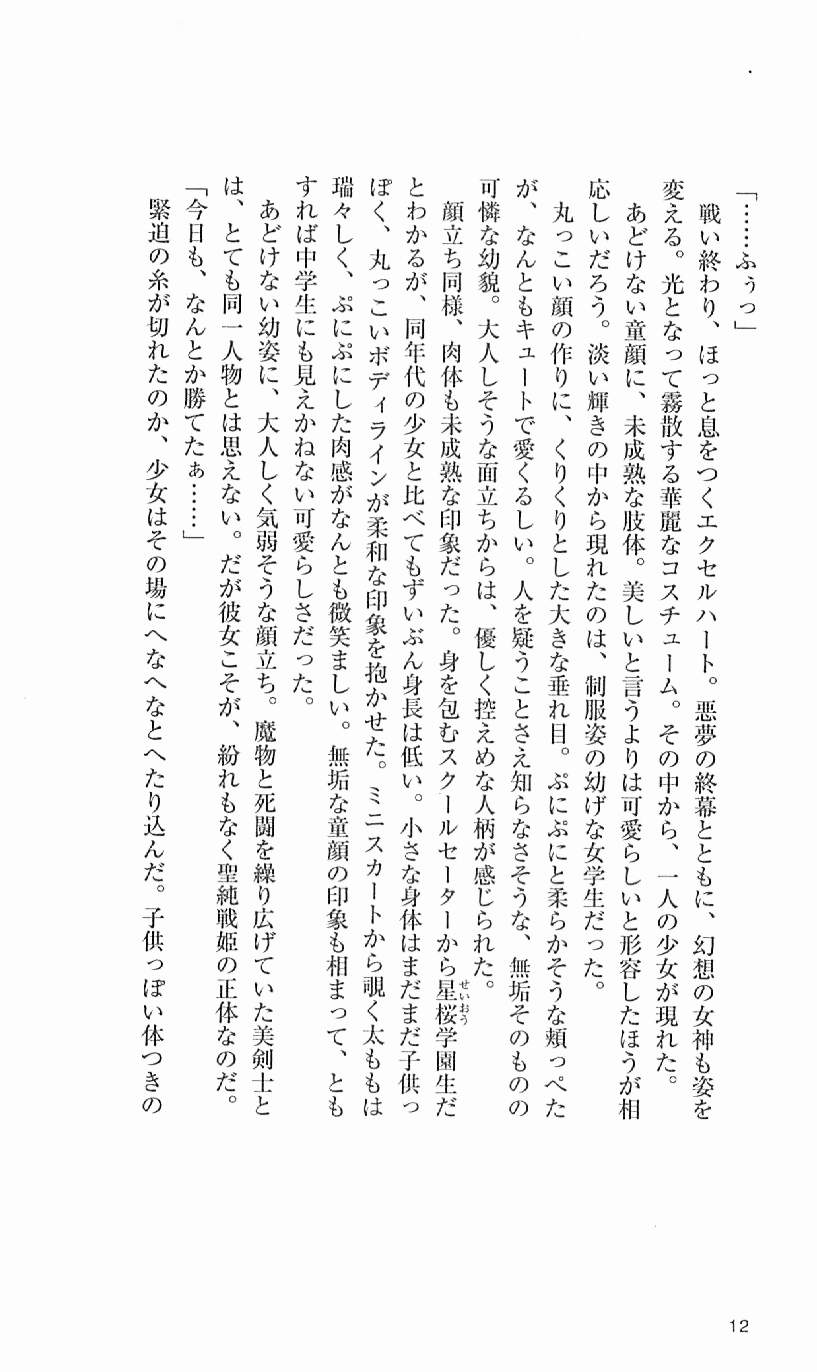 「……ふぅっ」
戦い終わり、ほっと息をつくエクセルハート。悪夢の終幕とともに、幻想の女神も姿を
変える。光となって霧散する華麗なコスチューム。その中から、一人の少女が現れた。
あどけない童顔に、未成熟な肢体。美しいと言うよりは可愛らしいと形容したほうが相
応しいだろう。淡い輝きの中から現れたのは、制服姿の幼げな女学生だった。
丸っこい顔の作りに、くりくりとした大きな垂れ目。ぷにぷにと柔らかそうな頬っぺた
が、なんともキュートで愛くるしい。人を疑うことさえ知らなさそうな、無垢そのものの
可憐な幼貌。大人しそうな面立ちからは、優しく控えめな人柄が感じられた。
顔立ち同様、肉体も未成熟な印象だった。身を包むスクールセーターから星桜学園生だ
せいおう
とわかるが、同年代の少女と比べてもずいぶん身長は低い。小さな身体はまだまだ子供っ
ぽく、丸っこいボディラインが柔和な印象を抱かせた。ミニスカートから覗く太ももは
瑞々しく、ぷにぷにした肉感がなんとも微笑ましい。無垢な童顔の印象も相まって、とも
すれば中学生にも見えかねない可愛らしさだった。
あどけない幼姿に、大人しく気弱そうな顔立ち。魔物と死闘を繰り広げていた美剣士と
は、とても同一人物とは思えない。だが彼女こそが、紛れもなく聖純戦姫の正体なのだ。
「今日も、なんとか勝てたぁ……」
緊迫の糸が切れたのか、少女はその場にへなへなとへたり込んだ。子供っぽい体つきの
12